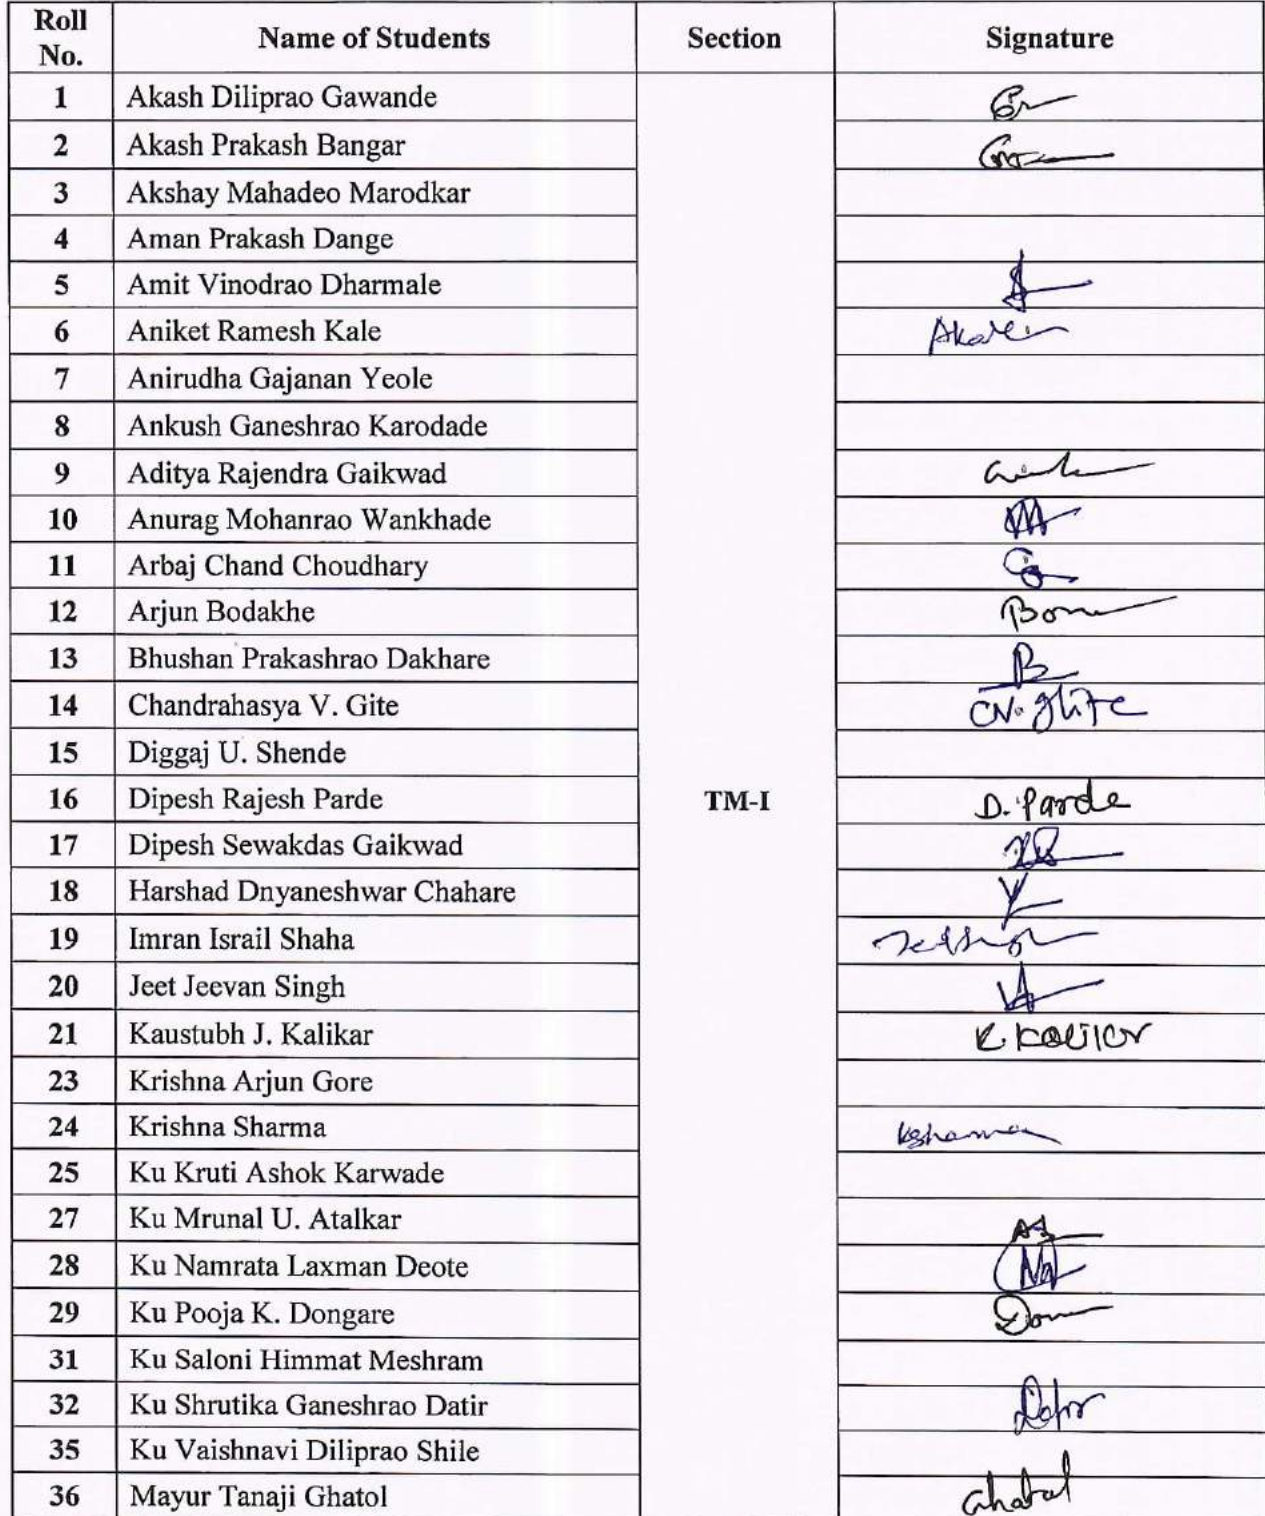 Roll No. Name of Students Section Signature
1 Akash Diliprao Gawande
2 Akash Prakash Bangar
3 Akshay Mahadeo Marodkar
4 Aman Prakash Dange
5 Amit Vinodrao Dharmale
6 Aniket Ramesh Kale
7 Anirudha Gajanan Yeole
8 Ankush Ganeshrao Karodade
9 Aditya Rajendra Gaikwad
10 Anurag Mohanrao Wankhade
11 Arbaj Chand Choudhary
12 Arjun Bodakhe
13 Bhushan Prakashrao Dakhare B
14 Chandrahasya V. Gite
15 Diggaj U. Shende
16 Dipesh Rajesh Parde TM-I D. Parde
17 Dipesh Sewakdas Gaikwad
18 Harshad Dnyaneshwar Chahare
19 Imran Israil Shaha
20 Jeet Jeevan Singh
21 Kaustubh J. Kalikar
23 Krishna Arjun Gore
24 Krishna Sharma
25 Ku Kruti Ashok Karwade
27 Ku Mrunal U. Atalkar
28 Ku Namrata Laxman Deote
29 Ku Pooja K. Dongare
31 Ku Saloni Himmat Meshram
32 Ku Shrutika Ganeshrao Datir
35 Ku Vaishnavi Diliprao Shile
36 Mayur Tanaji Ghatol Ghatol